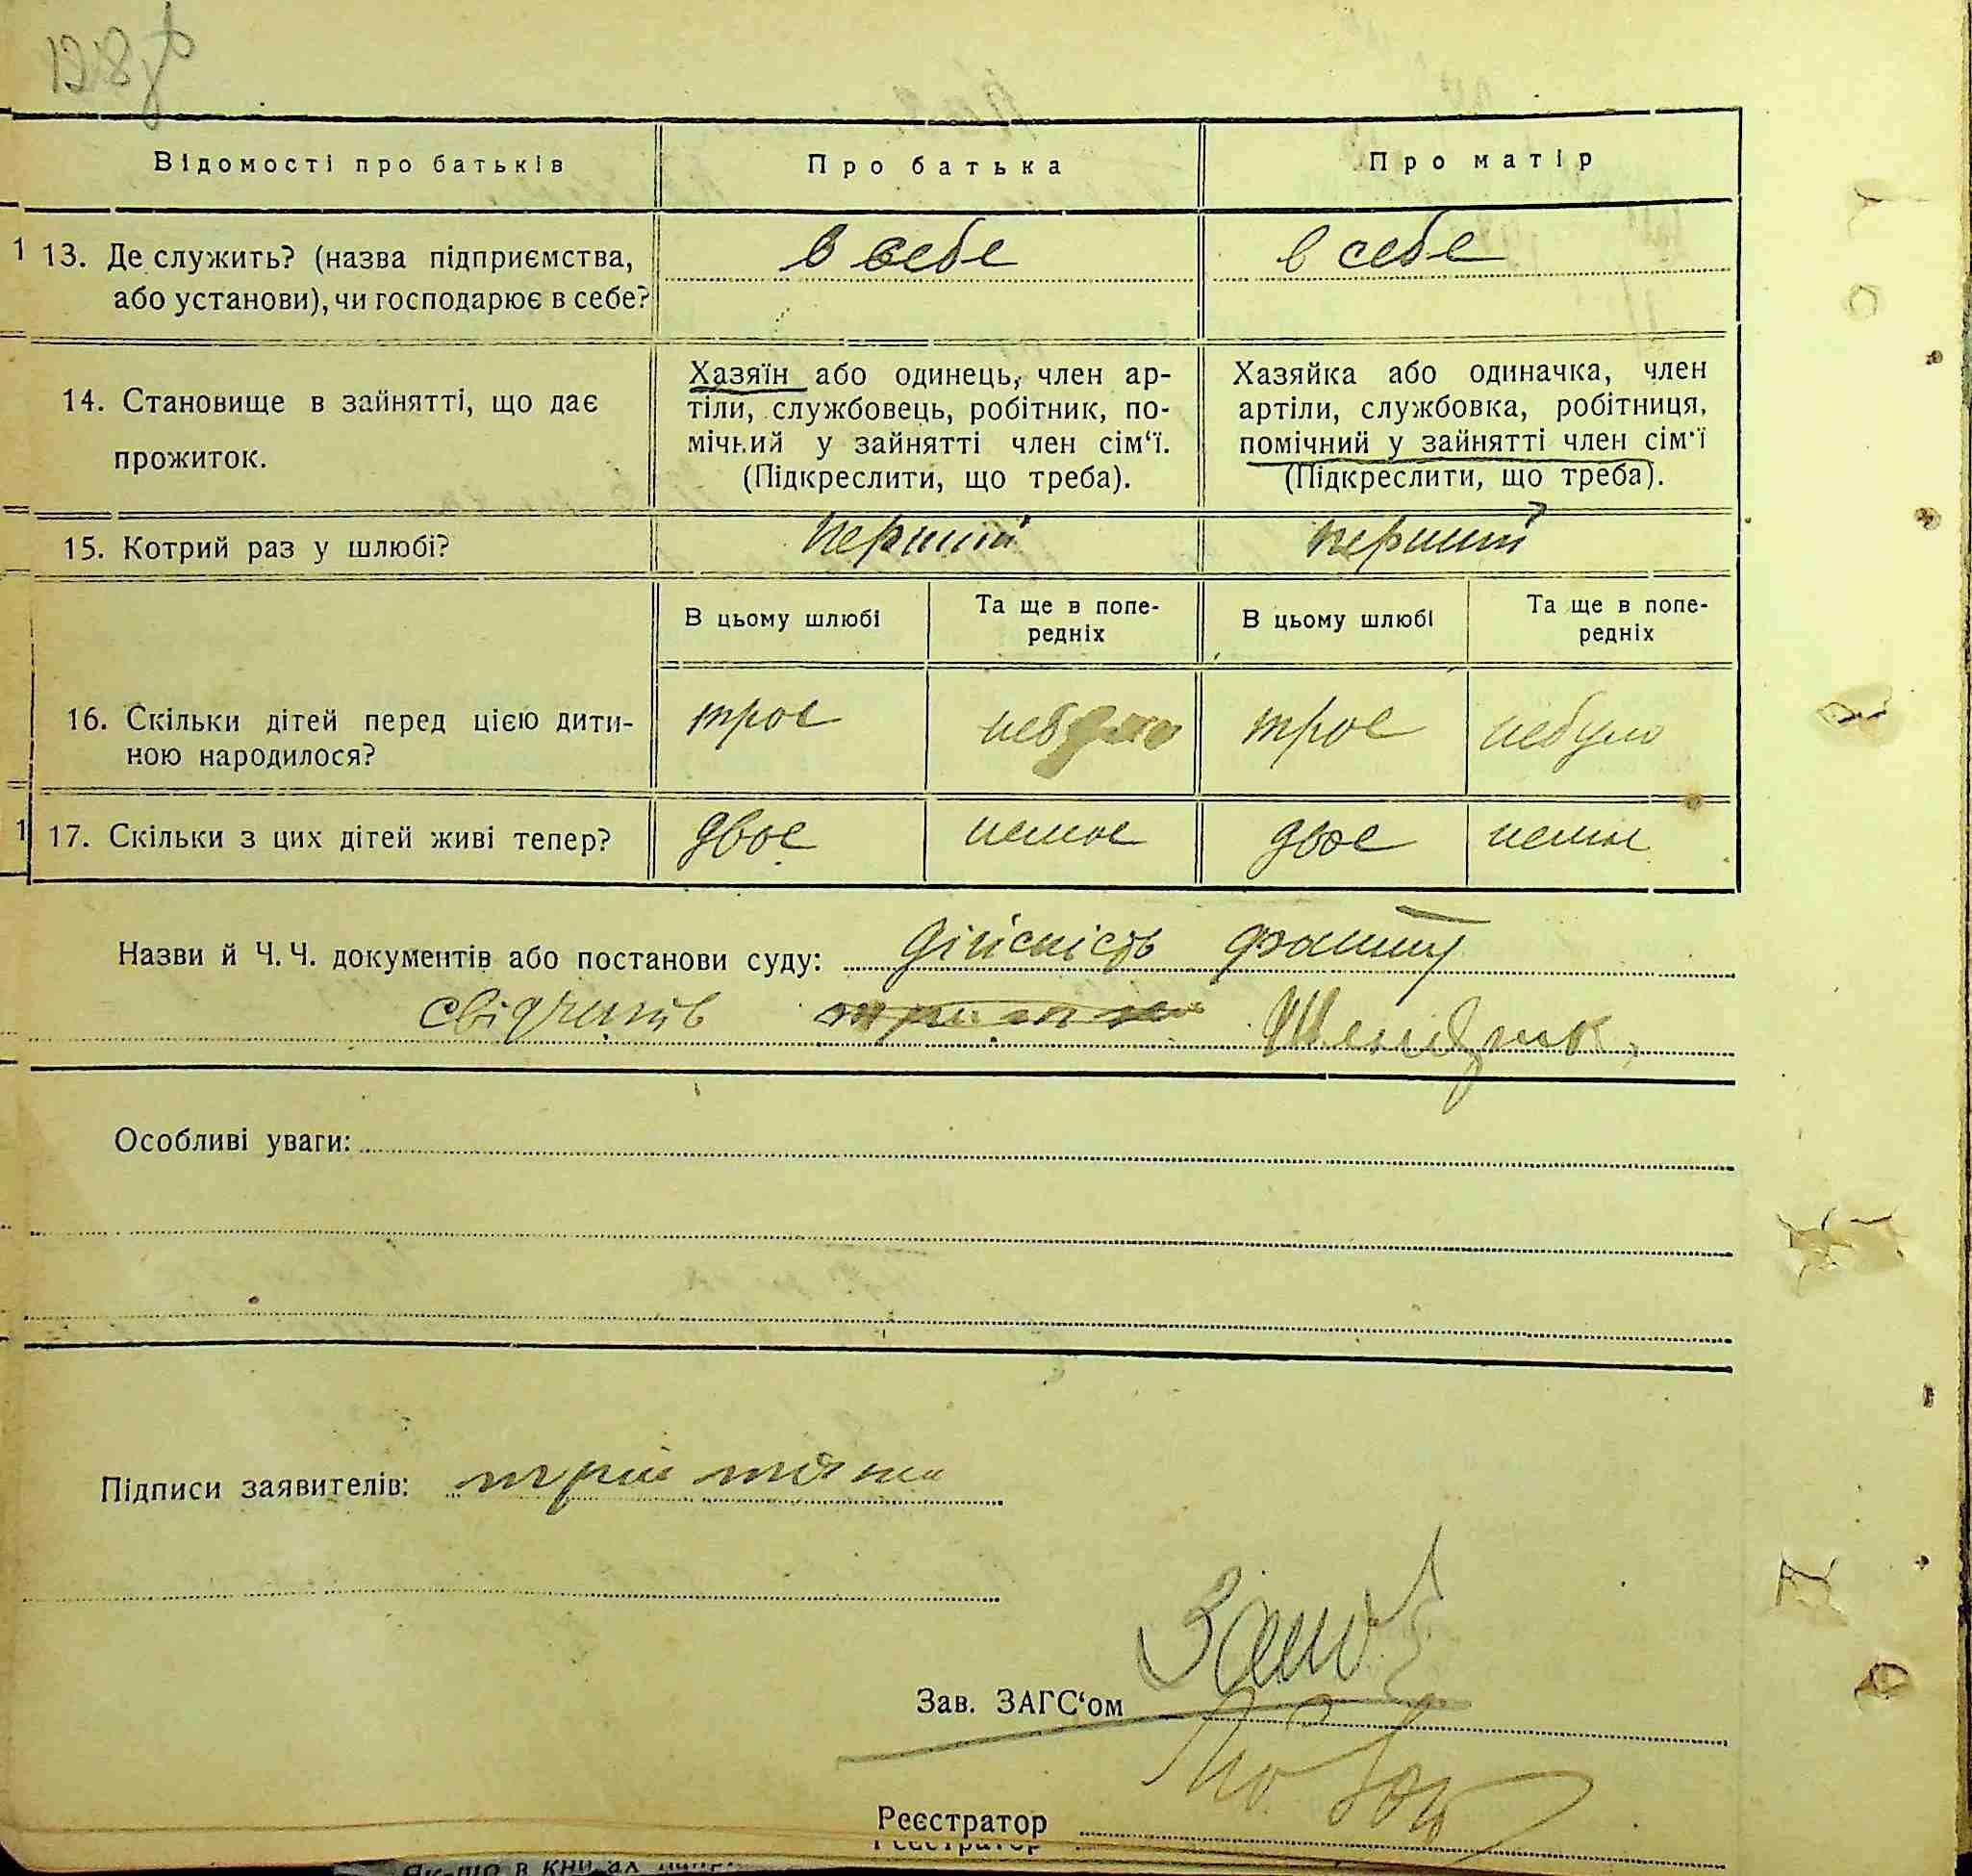 128
Відомості про батьків
Про батька
Про матір
1 13. Де служить? (назва підприємства,
або установи), чи господарює в себе?
в себе
в себе
14. Становище в зайнятті, що дає
прожиток.
Хазяїн або одинець, член ар-
тіли, службовець, робітник, по-
мічний у зайнятті член сім‘ї.
(Підкреслити, що треба).
Хазяйка або одиначка, член
артіли, службовка, робітниця,
помічний у зайнятті член сім‘ї
(Підкреслити, що треба).
15. Котрий раз у шлюбі?
перший
перший
В цьому шлюбі
Та ще в попе-
редніх
В цьому шлюбі
Та ще в попе-
редніх
16. Скільки дітей перед цією дити-
ною народилося?
трое
небуло
трое
небуло
1 17. Скільки з цих дітей живі тепер?
двое
немае
двое
немае
Назви й Ч. Ч. документів або постанови суду: дійсність факту
свідчить
Особливі уваги:
Підписи заявителів:
Зав. ЗАГС‘ом
Реєстратор
Реєстратор
Як-що в книгах